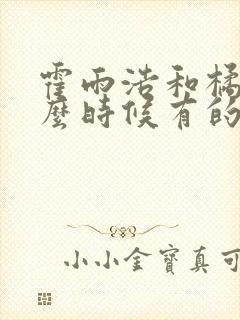 霍雨浩和橘
麼時候有的
小小金寶真可